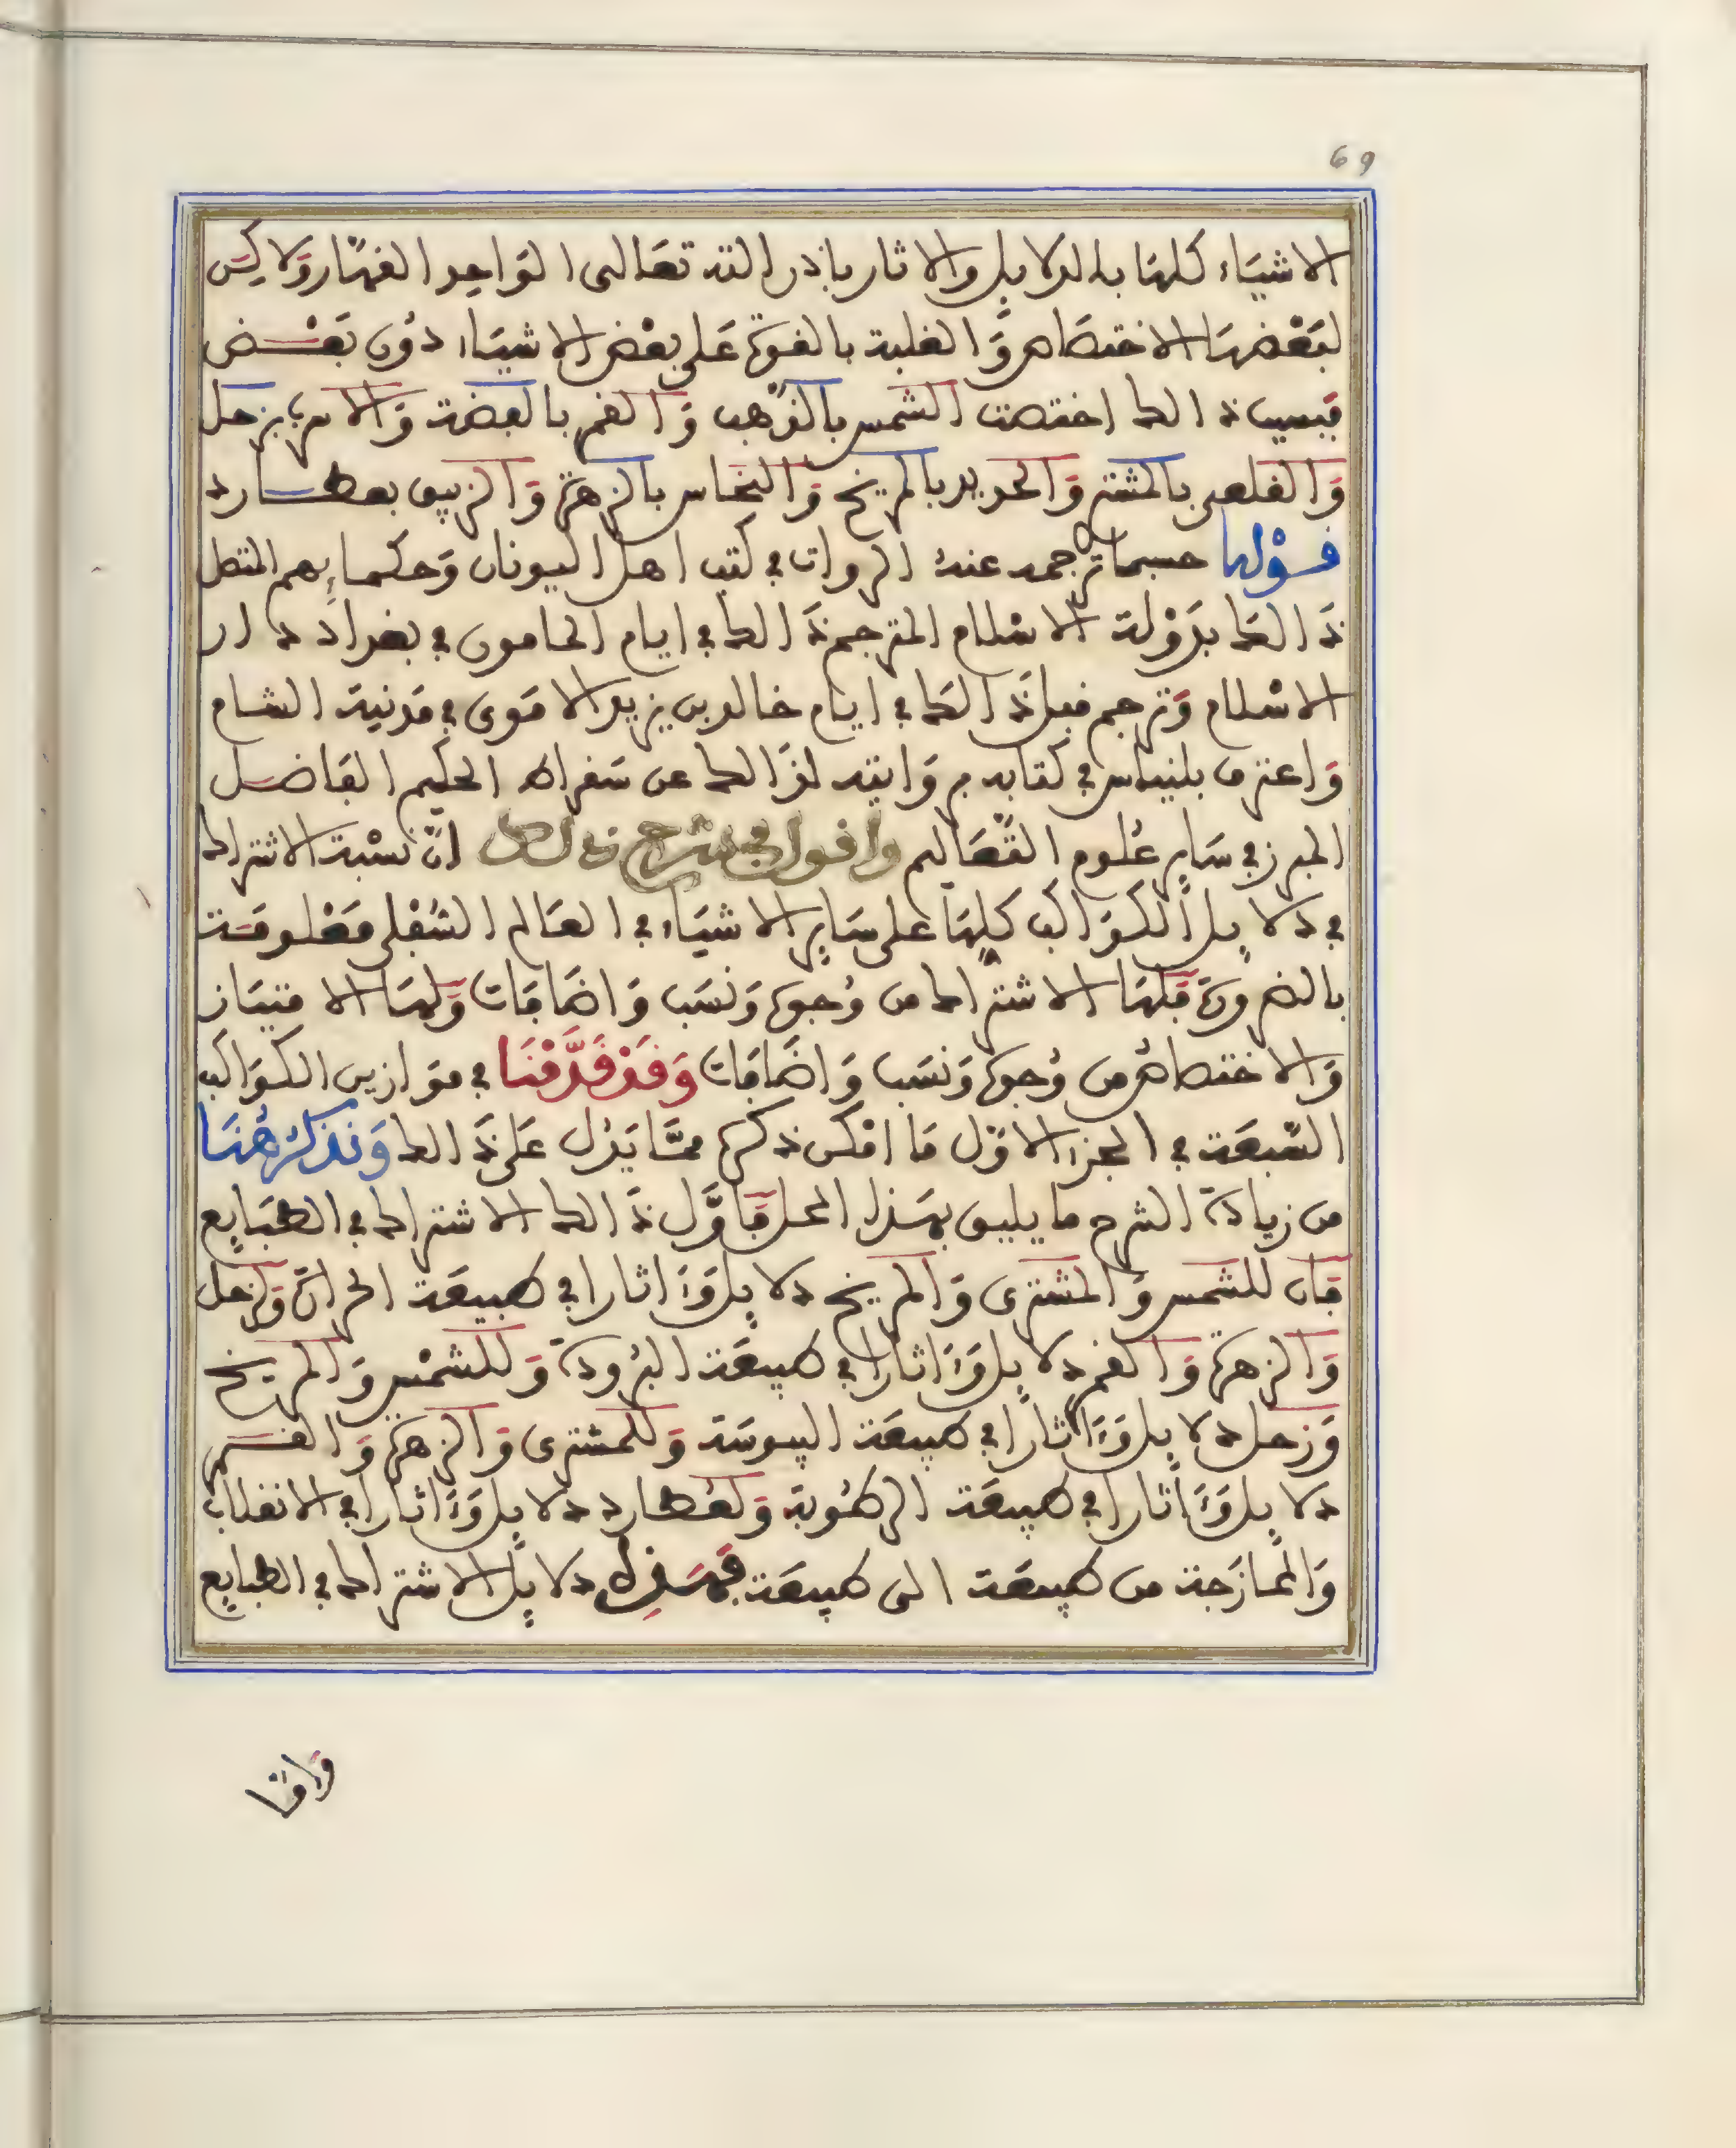 69
الاشياء كلها بالدلايل والاثار باذن الله تعالى الواحد القهار ولاكن
لبعضها الاختصاص والغلبة بالقوة على بعض الاشياء دون بعض
فبسبب ذالك اختصت الشمس بالذهب والقمر بالفضة والاسرب بزحل
والقلعى بالمشتر والحديد بالمريخ والنحاس بالزهرة والزيبق بعطارد
قولها حسبما ترجمه عنه الروات في كتب اهل اليونان وحكمايهم المتصل
ذالك بدولة الاسلام المترجم ذالك في ايام المامون في بغداد دار
الاسلام وترجم قبل ذالك في ايام خالد بن يزيد الاموى في مدنية الشام
واعترف بلنياس في كتابه بروايته لذالك عن سقراط الحكيم الفاضل
المبرز في ساير علوم التعاليم واقول في شرح ذلك ان نسبة الاشتراك
في دلايل الكواكب كلها على ساير الاشياء في العالم السفلى معلومة
بالضرورة فلها الاشتراك من وجوه ونسب واضافات ولها الامتياز
والاختصاص من وجوه ونسب واضافات وقد قدمنا في موازين الكواكب
السبعة في الجزء الاول ما امكن ذكره مما يدل على ذالك ونذكر هنا
من زيادة الشرح ما يليق بهذا المحل فاول ذالك الاشتراك في الطبايع
فان للشمس والمشترى والمريخ دلايل وءاثارا في طبيعة الحرارة ولزحل
والزهرة والقمر دلايل وءاثارا في طبيعة البرودة وللشمس والمريخ
وزحل دلايل وءاثارا في طبيعة اليبوسة وللمشترى والزهرة والقمر
دلايل وءاثارا في طبيعة الرطوبة ولعطارد دلايل وءاثارا في الانقلاب
والممازجة من طبيعة الى طبيعة فهذه دلايل الاشتراك في الطبايع
واما